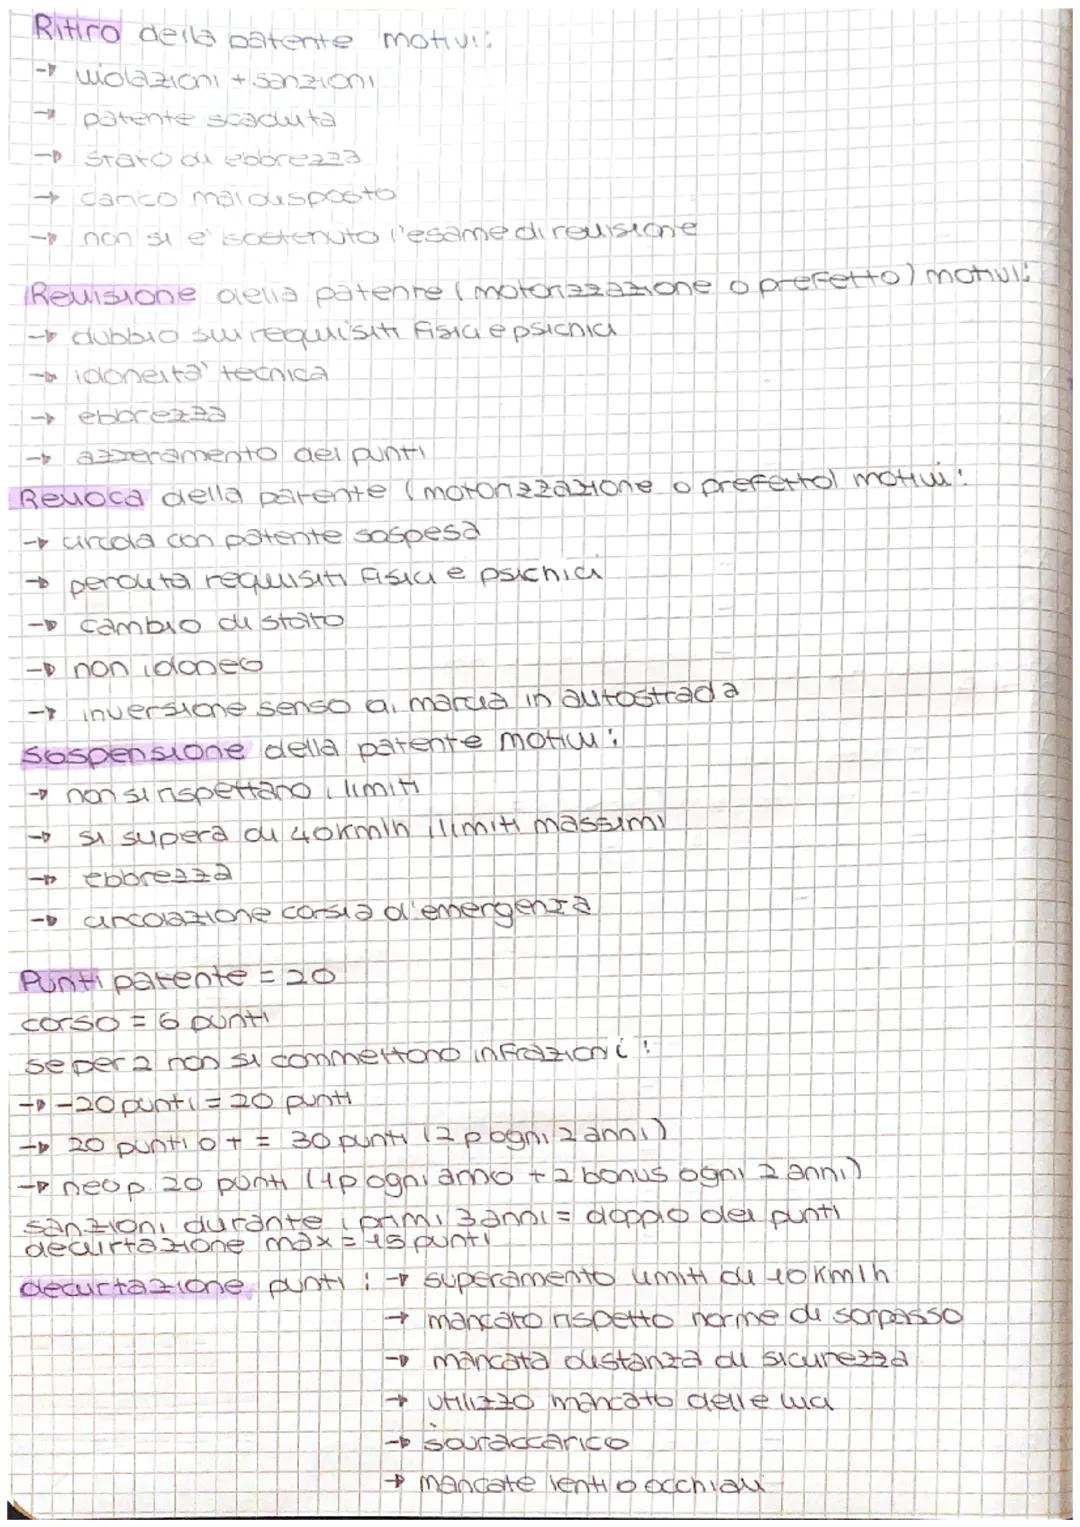 Ritiro della patente motivi:
→ violazioni + sanzioni
→ patente scaduta
→ stato di ebbrezza
→ carico mal disposto
→ non si e' sostenuto l'esame di revisione
Revisione della patente (motorizzazione o prefetto) motivi:
→ dubbio sui requisiti fisici e psichici
→ idoneita' tecnica
→ ebbrezza
→ azzeramento dei punti
Revoca della patente (motorizzazione o prefetto) motivi:
→ circola con patente sospesa
→ perduta requisiti fisici e psichici
→ cambio di stato
→ non idoneo
→ inversione senso di marcia in autostrada
Sospensione della patente motivi:
→ non si rispettano i limiti
→ si supera di 40km/h i limiti massimi
→ ebbrezza
→ circolazione corsia d'emergenza
Punti patente = 20
corso = 6 punti
se per 2 non si commettono infrazioni:
→ -20 punti = 20 punti
→ 20 punti o + = 30 punti (2 p ogni 2 anni)
→ neop. 20 punti (1p ogni anno + 2 bonus ogni 2 anni)
sanzioni durante i primi 3 anni = doppio dei punti
decurtazione max = 15 punti
decurtazione punti: → superamento limiti di 10 km/h
→ mancato rispetto norme di sorpasso
→ mancata distanza di sicurezza
→ utilizzo mancato delle luci
→ sovraccarico
→ mancate lenti o occhiali